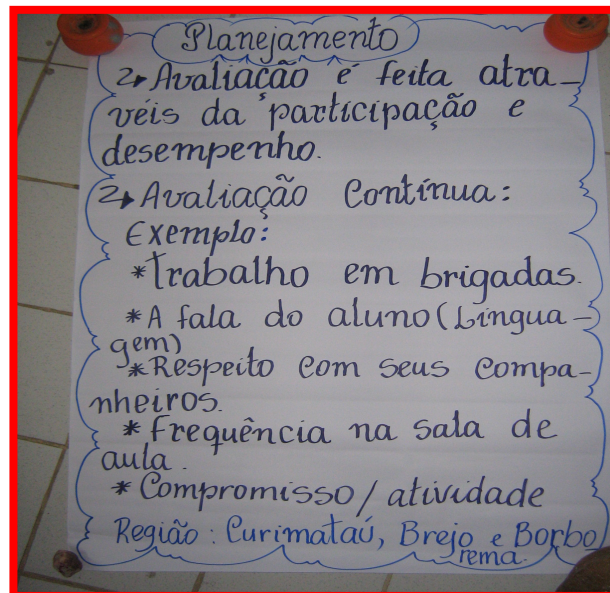 Planejamento
2▸ Avaliação é feita atra-
véis da participação e
desempenho.
2▸ Avaliação Contínua:
Exemplo:
*Trabalho em brigadas.
*A fala do aluno (Lingua-
gem)
*Respeito com seus compa-
nheiros.
*Frequência na sala de
aula.
*Compromisso/atividade
Região: Curimataú, Brejo e Borbo
rema.